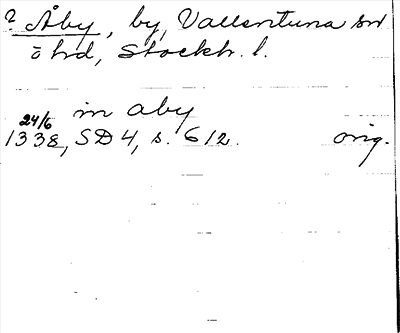 ? Åby, by, Vallentuna sn
o hd, Stockh. l.
in aby
24/6
1338, SD 4, s. 612. orig.